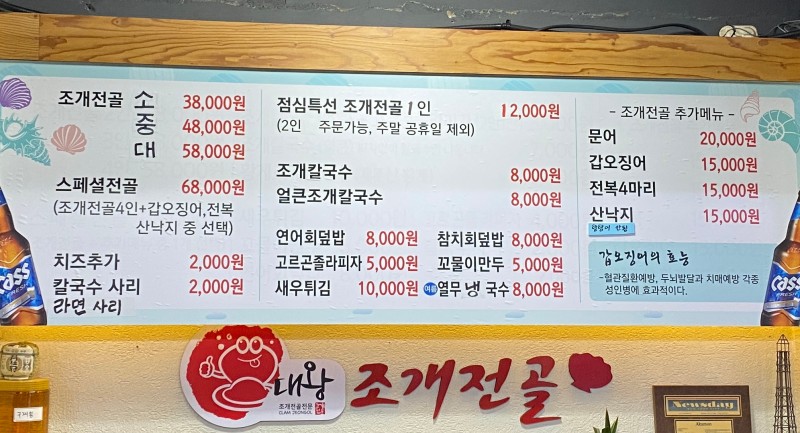 조개전골 소 38,000원
중 48,000원
대 58,000원
스페셜전골 68,000원
(조개전골4인+갑오징어,전복
산낙지 중 선택)
치즈추가 2,000원
칼국수 사리 2,000원
라면 사리
점심특선 조개전골 1인 12,000원
(2인 주문가능, 주말 공휴일 제외)
조개칼국수 8,000원
얼큰조개칼국수 8,000원
연어회덮밥 8,000원 참치회덮밥 8,000원
고르곤졸라피자 5,000원 꼬물이만두 5,000원
새우튀김 10,000원 여름 열무 냉 국수 8,000원
- 조개전골 추가메뉴 -
문어 20,000원
갑오징어 15,000원
전복4마리 15,000원
산낙지 15,000원
갑오징어의 효능
-혈관질환예방, 두뇌발달과 치매예방 각종
성인병에 효과적이다.
Cass
FRESH
Cass
대왕
조개전골전문
CLAM JEONGOL
조개전골
Newsday